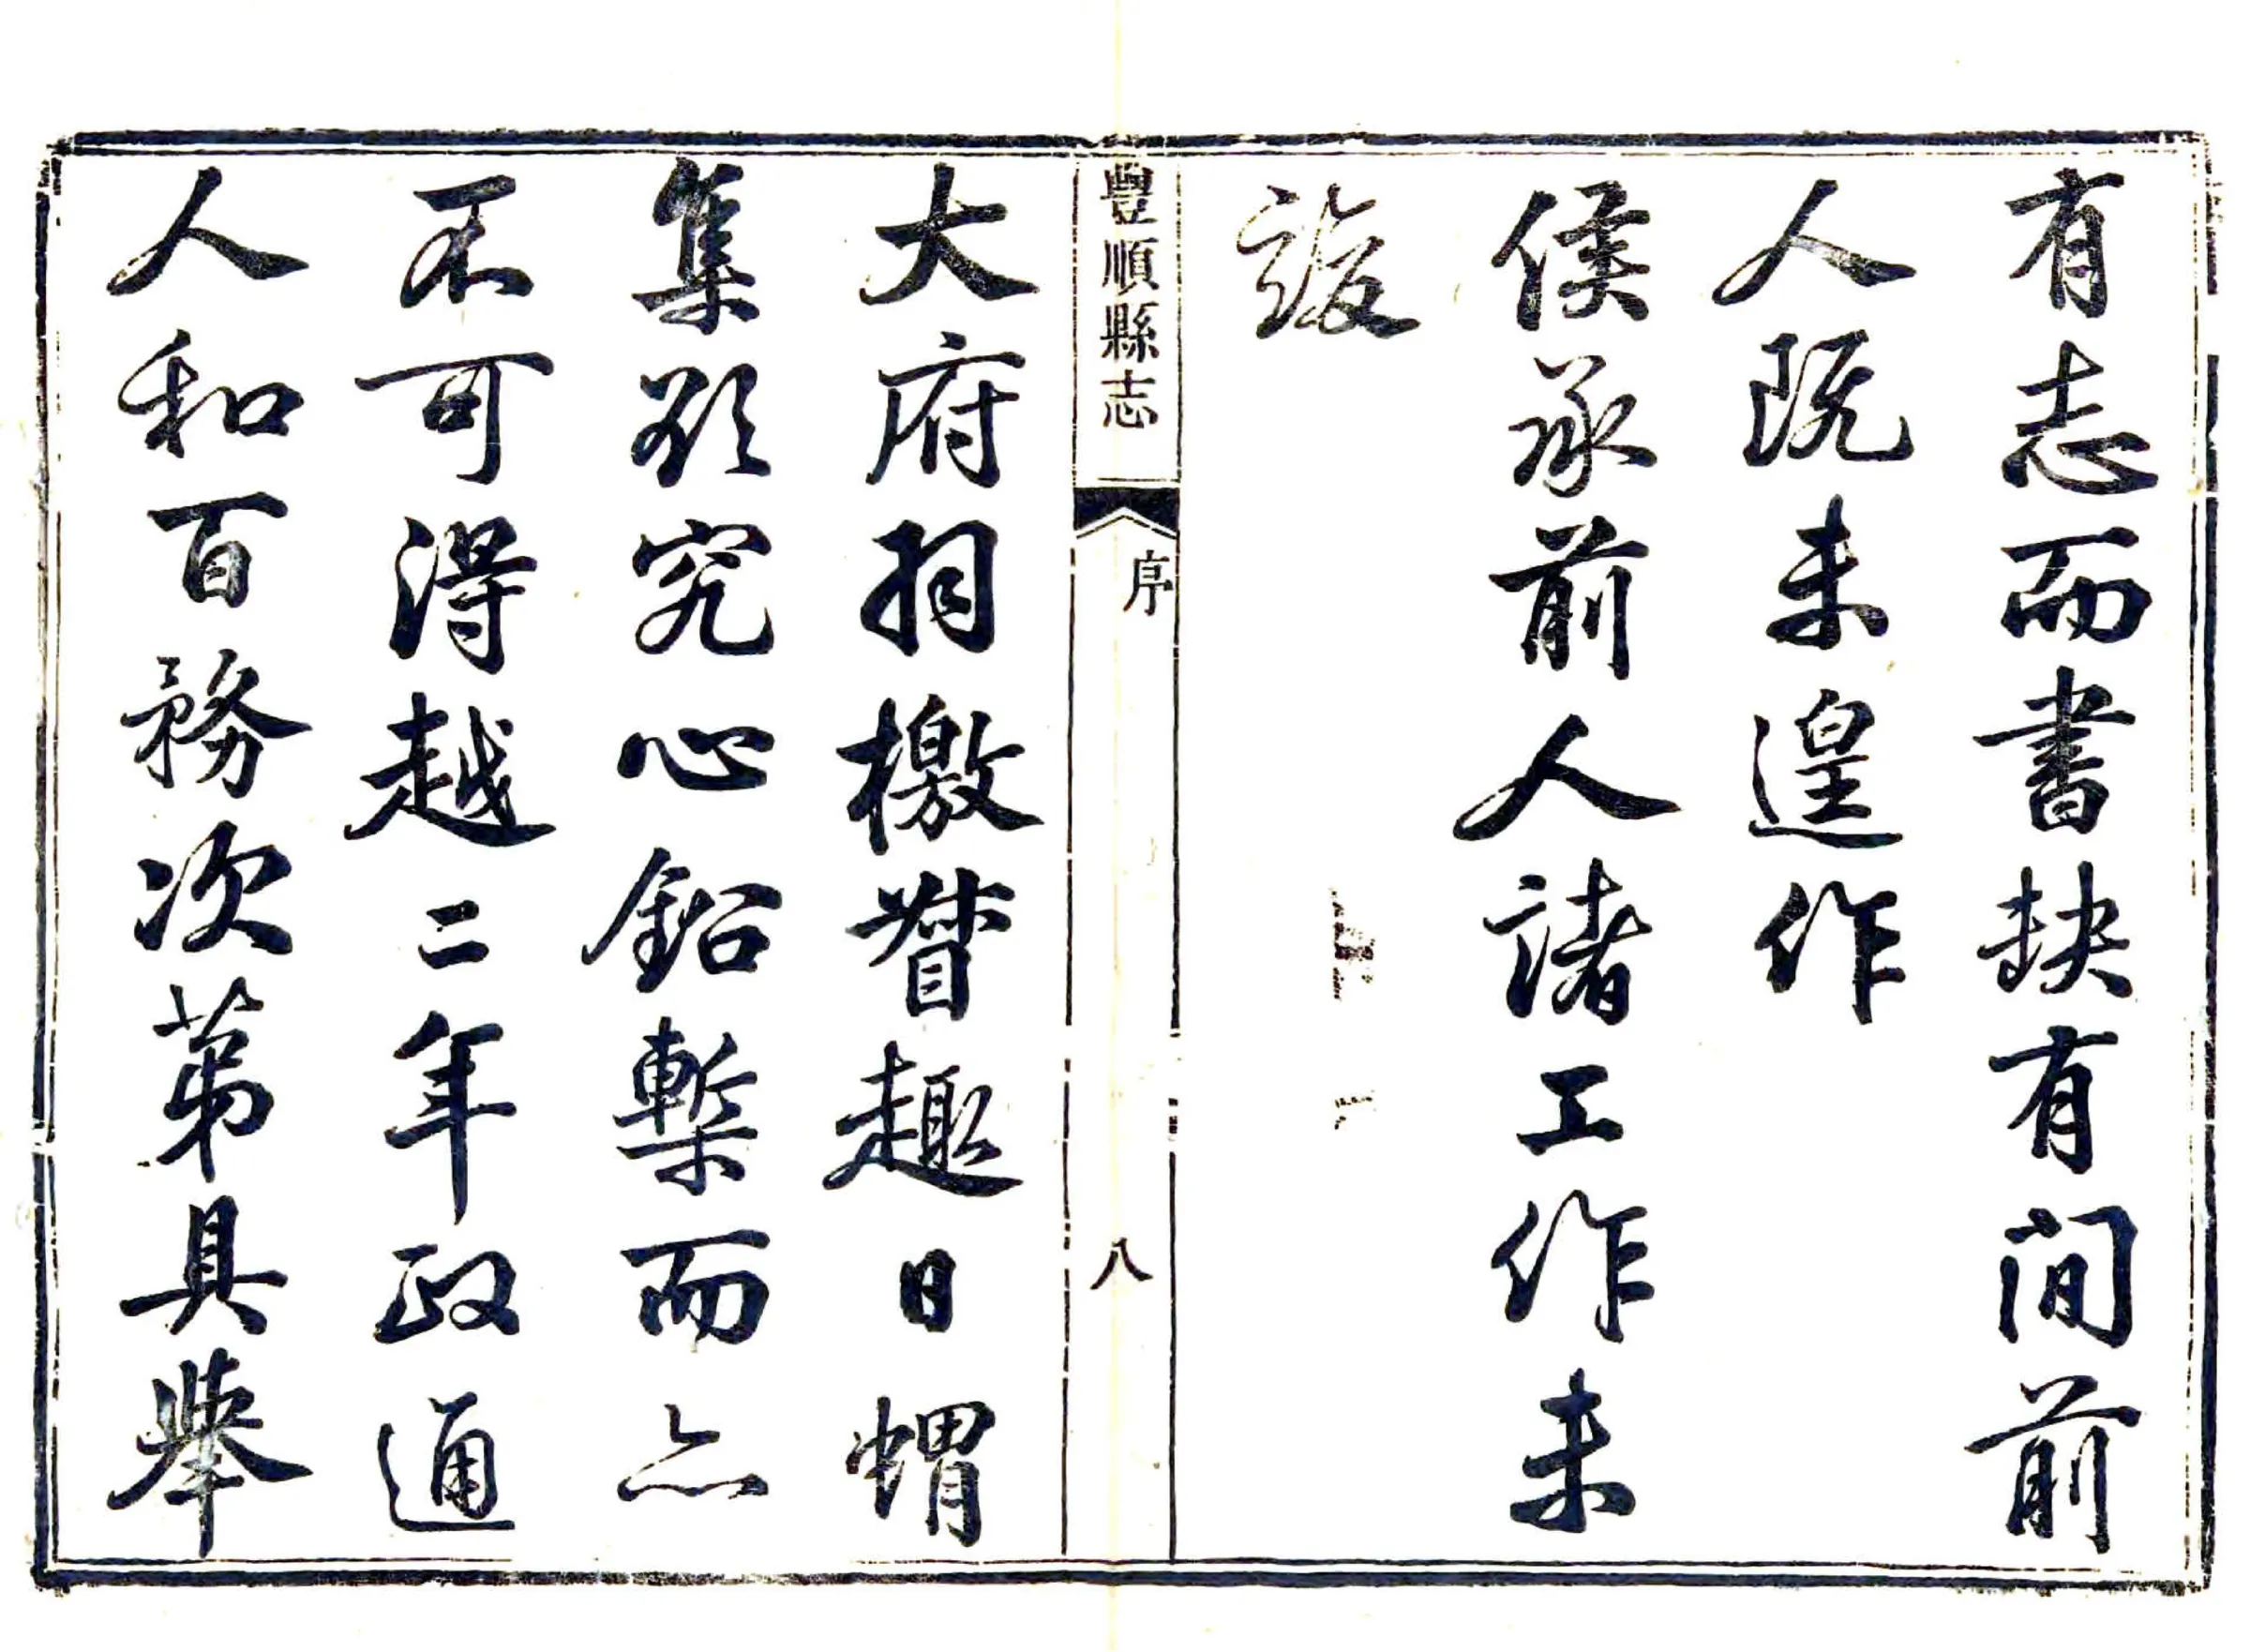 有志而書缺有间前
人既未遑作
侯承前人諸工作未
竣
豐順縣志
序
八
大府羽檄督趣日蝟
集欲究心鉛槧而亦
不可得越二年政通
人和百務次第具舉